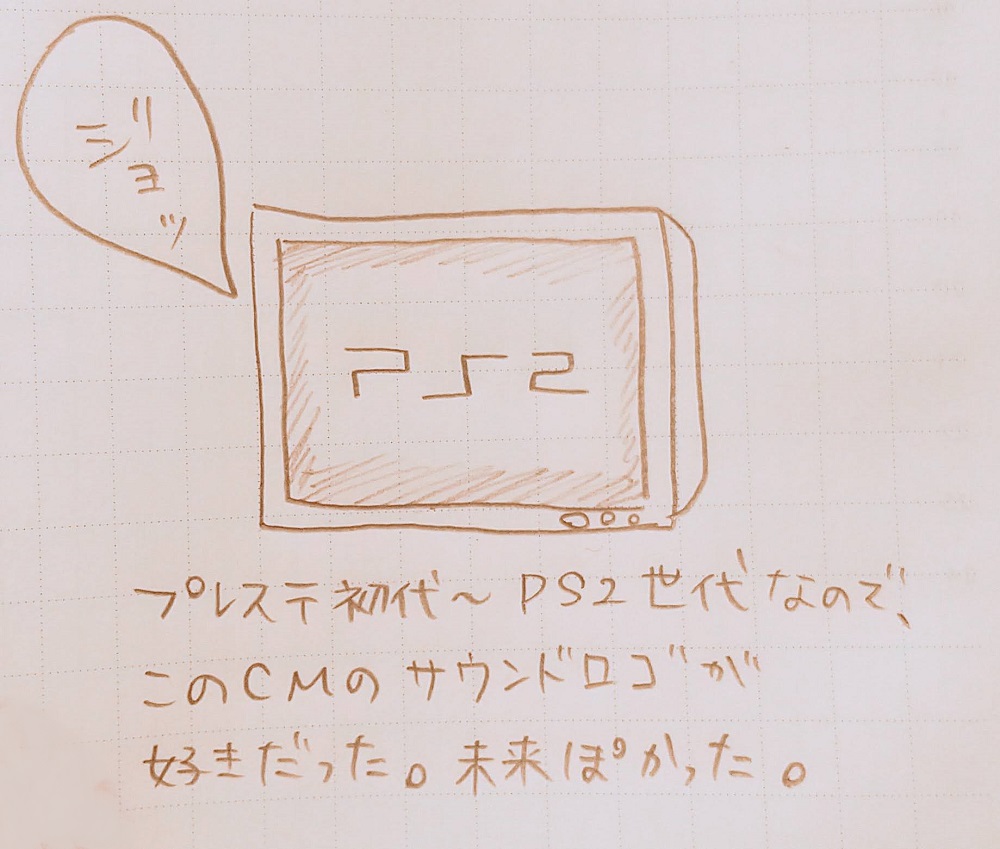 ジョッ
PS2
プレステ初代～PS2世代なので、
このCMのサウンドロゴが
好きだった。未来ぽかった。